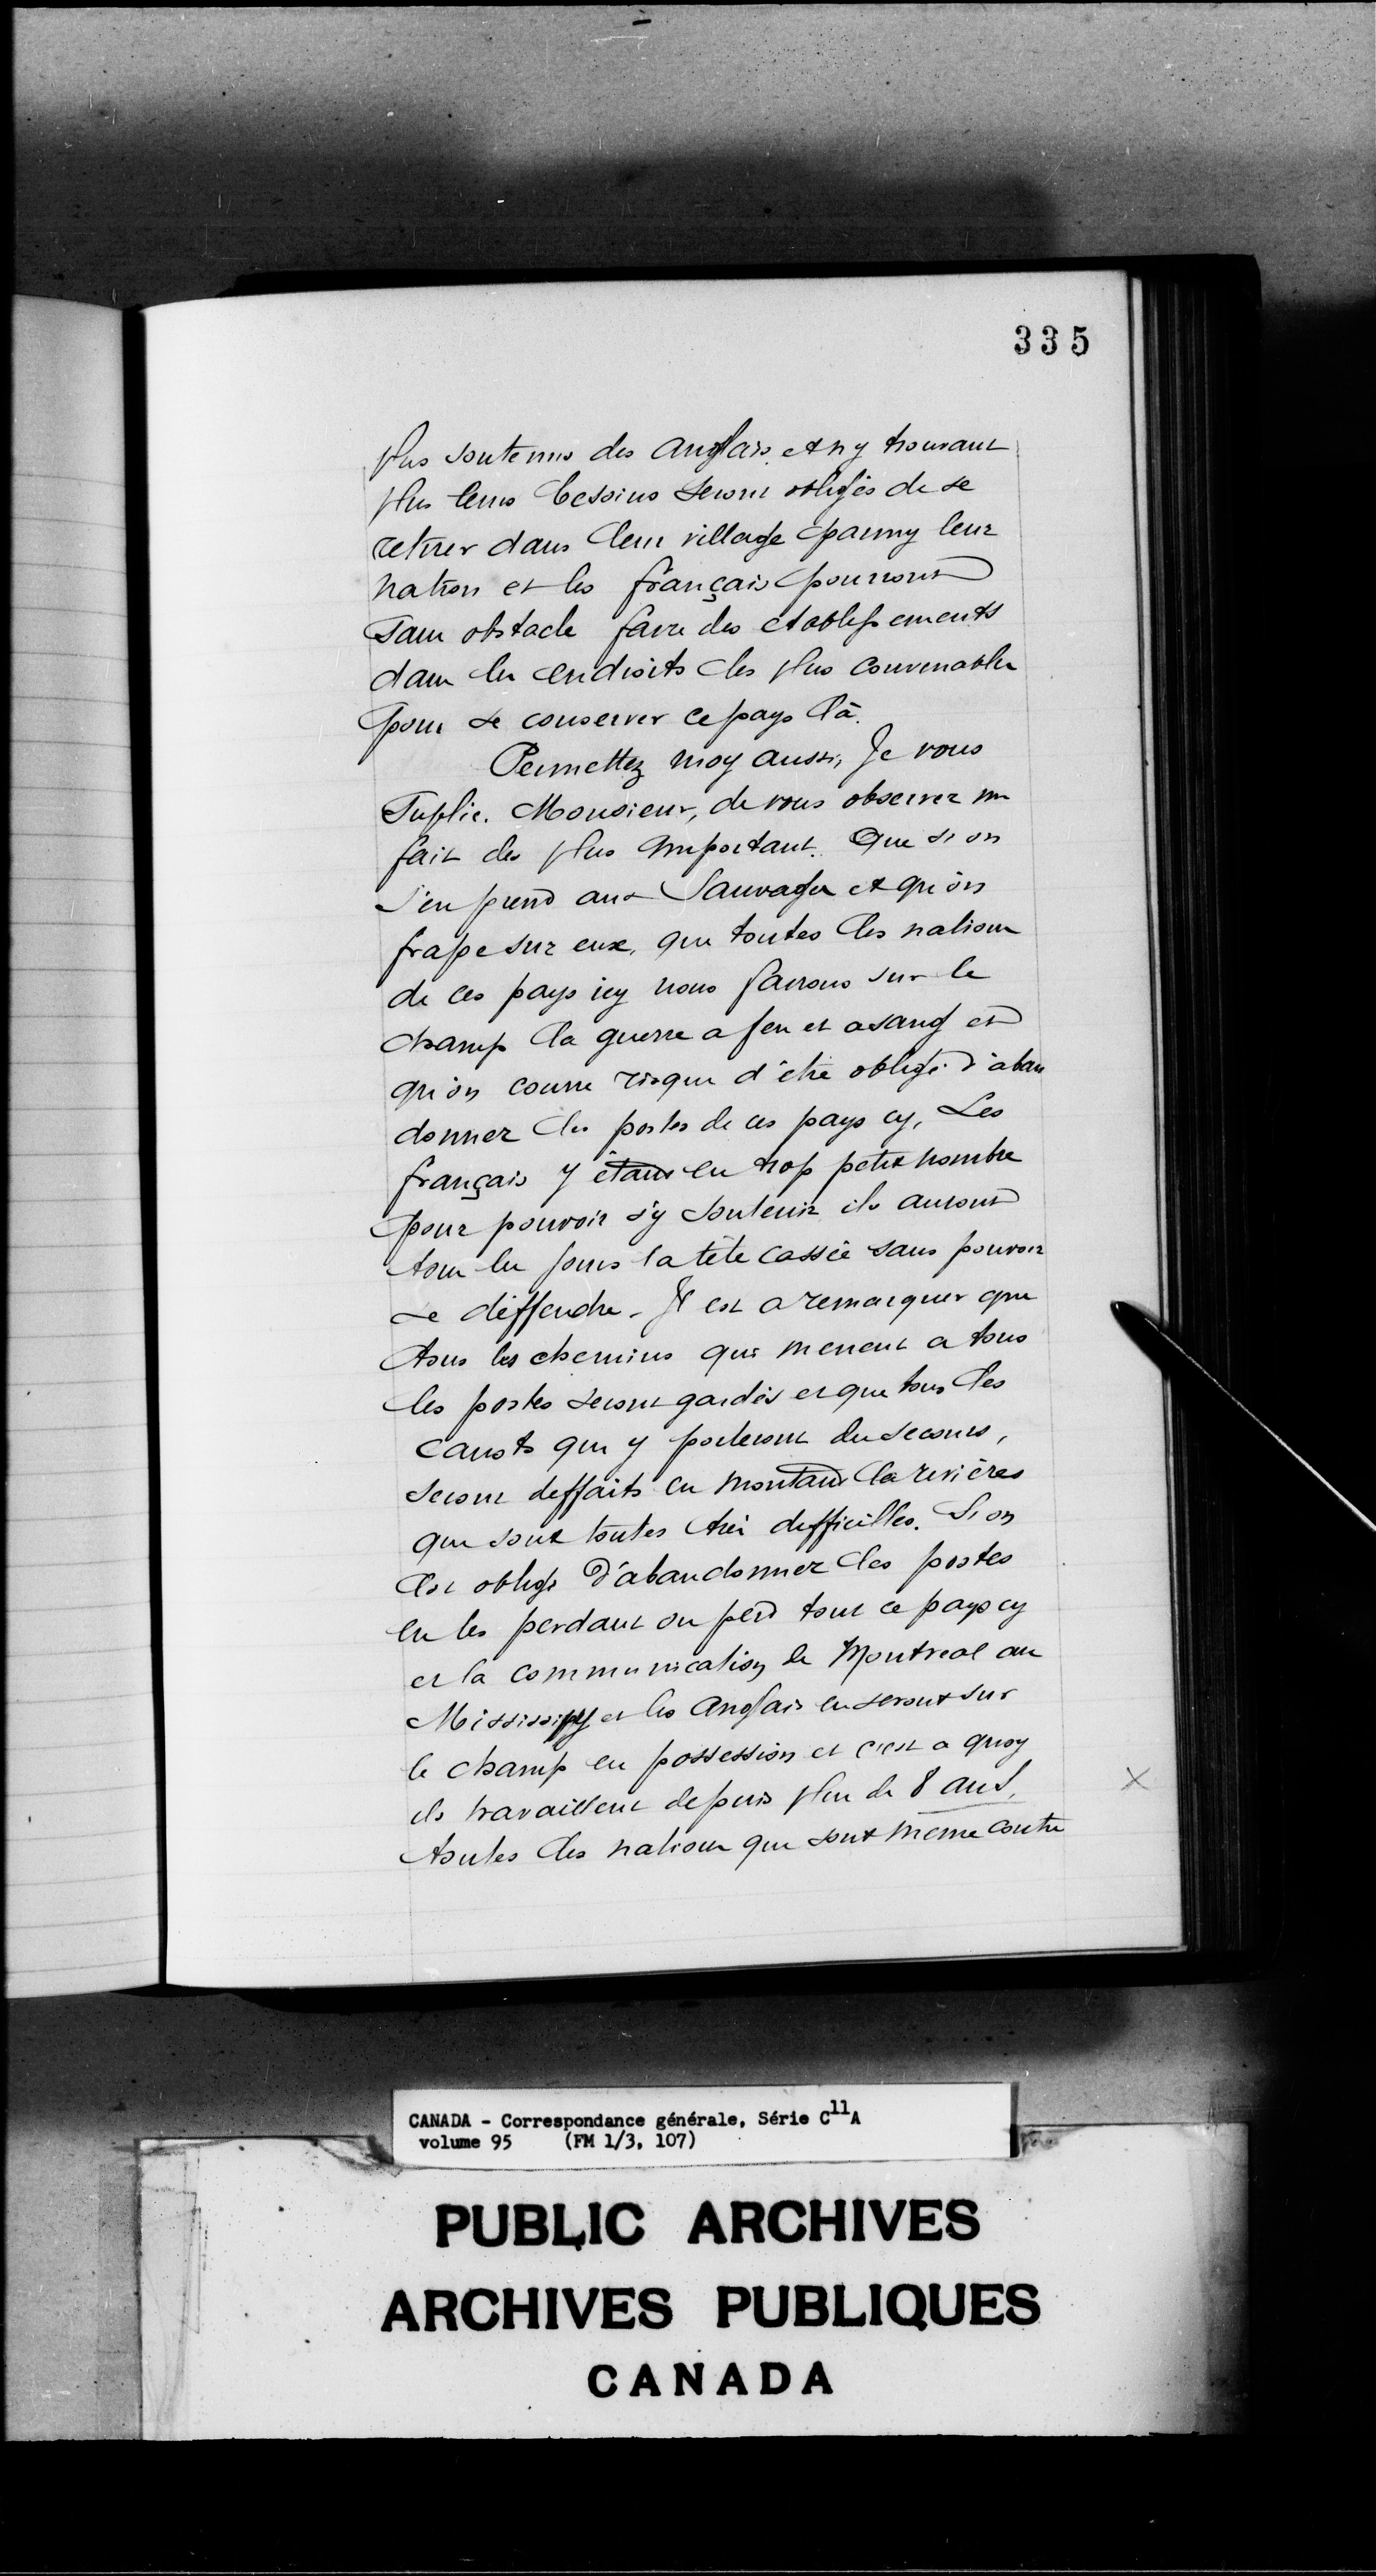 335
plus soutenus des anglais et ny trouvant
plus leurs besoins seront obligés de se
retirer dans leur village parmy leur
nation et les français pourront
sans obstacle faire des etablissements
dans les endroits les plus convenables
pour se conserver ce pays là.
Permettez moy aussi, Je vous
suplie. Monsieur, de vous observer un
fait des plus important. Que si on
s'en prend aux Sauvages et qu'on
frape sur eux, que toutes les nations
de ces pays icy nous fairons sur le
champ la guerre a feu et a sang et
qu'on courre risque d'être obligé d'aban
donner les postes de ces pays cy, Les
français y étant en trop petit nombre
pour pouvoir s'y soutenir ils auront
tous les jours la tête cassée sans pouvoir
se déffendre. Il est a remarquer que
tous les chemins qui menent a tous
les postes seront gardés et que tous les
canots qui y porteront du secours,
seront deffaits en montant la rivières
qui sont toutes très difficilles. Si on
est obligé d'abandonner les postes
en les perdant on perd tout ce pays cy
et la communication de Montreal au
Mississipy et les anglais en seront sur
le champ en possession et c'est a quoy
ils travaillent depuis plus de 8 ans,
toutes les nations qui sont même contre
X
CANADA - Correspondance générale, Série C11A
volume 95 (FM 1/3, 107)
PUBLIC ARCHIVES
ARCHIVES PUBLIQUES
CANADA